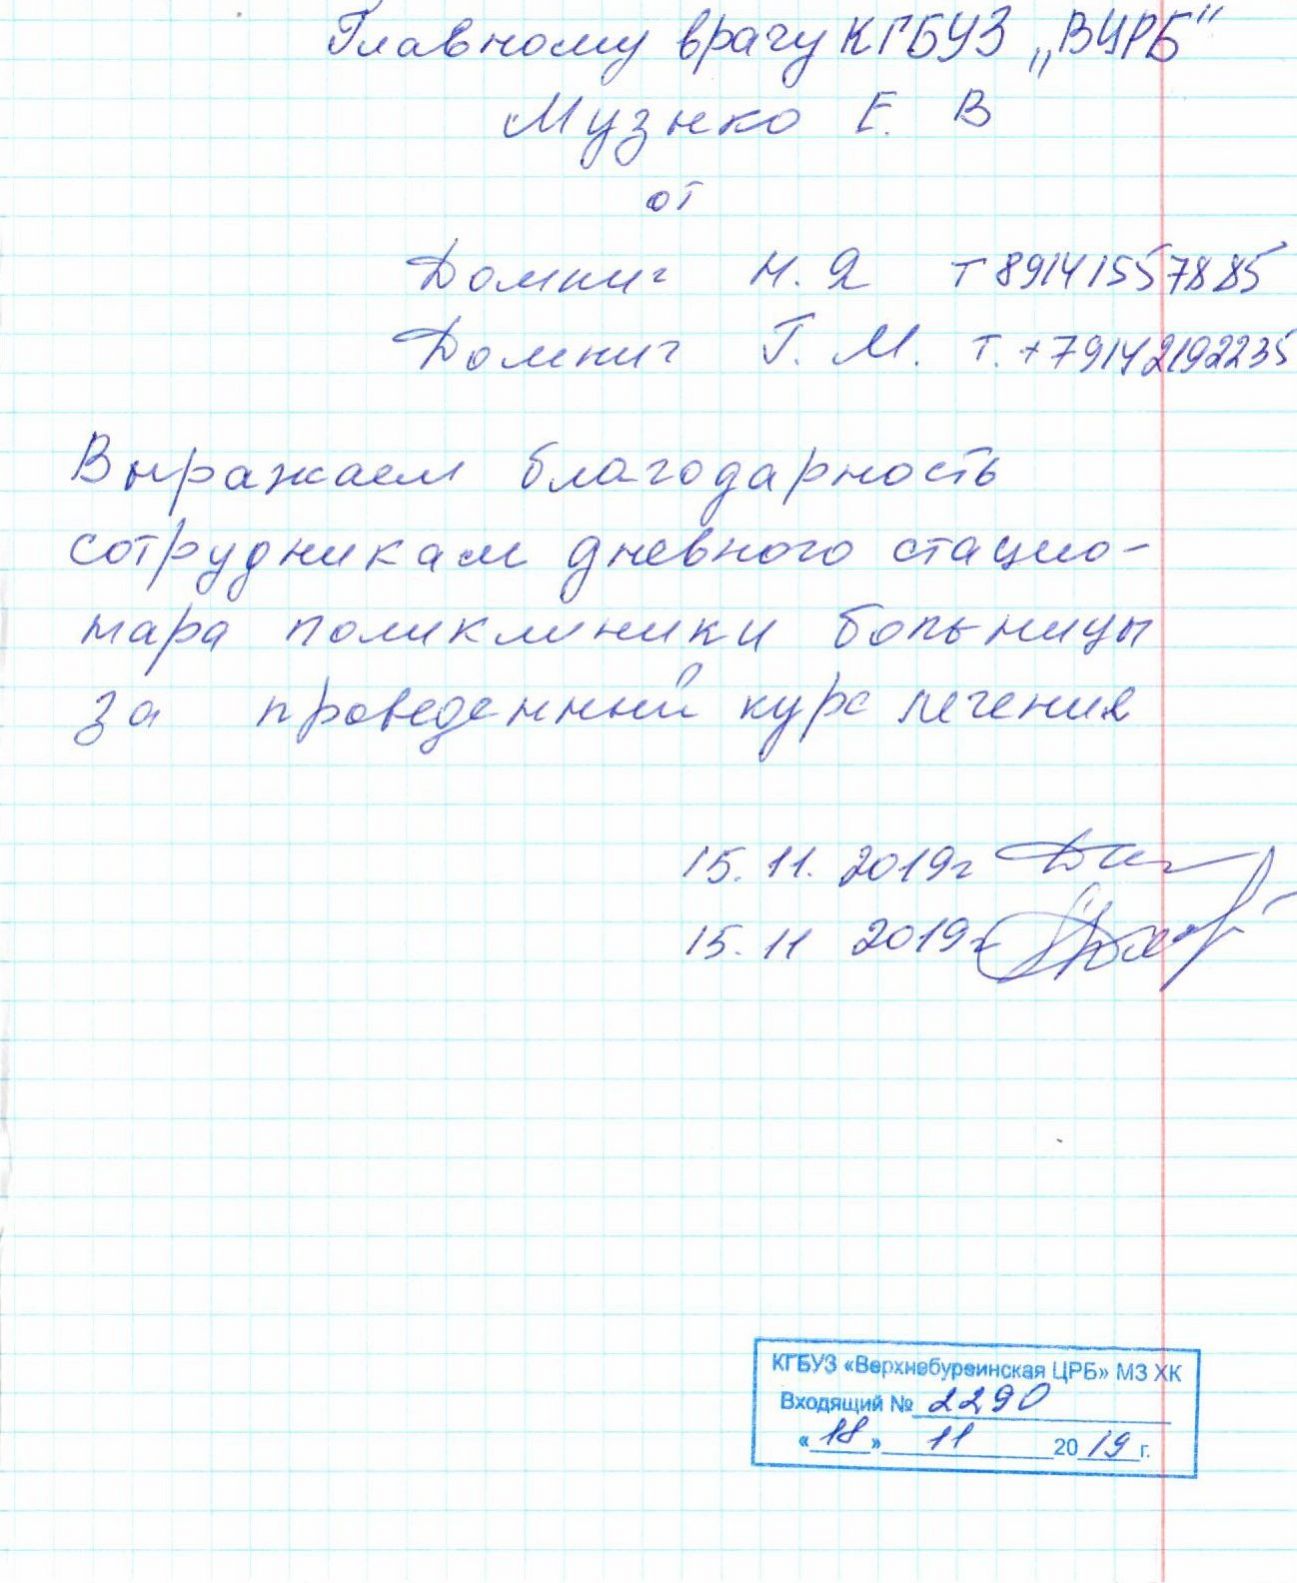 Главному врачу КГБУЗ „ВЦРБ“
Музыко Е. В
от
Домниг Н. Я т 89141557885
Домниг Г. М. т. +79142192235
Выражаем благодарность
сотрудникам дневного стацио-
нара поликлиники больницы
за проведенный курс лечения
15. 11. 2019г
15. 11 2019г
КГБУЗ «Верхнебуреинская ЦРБ» МЗ ХК
Входящий № 2290
« 18 » 11 2019 г.